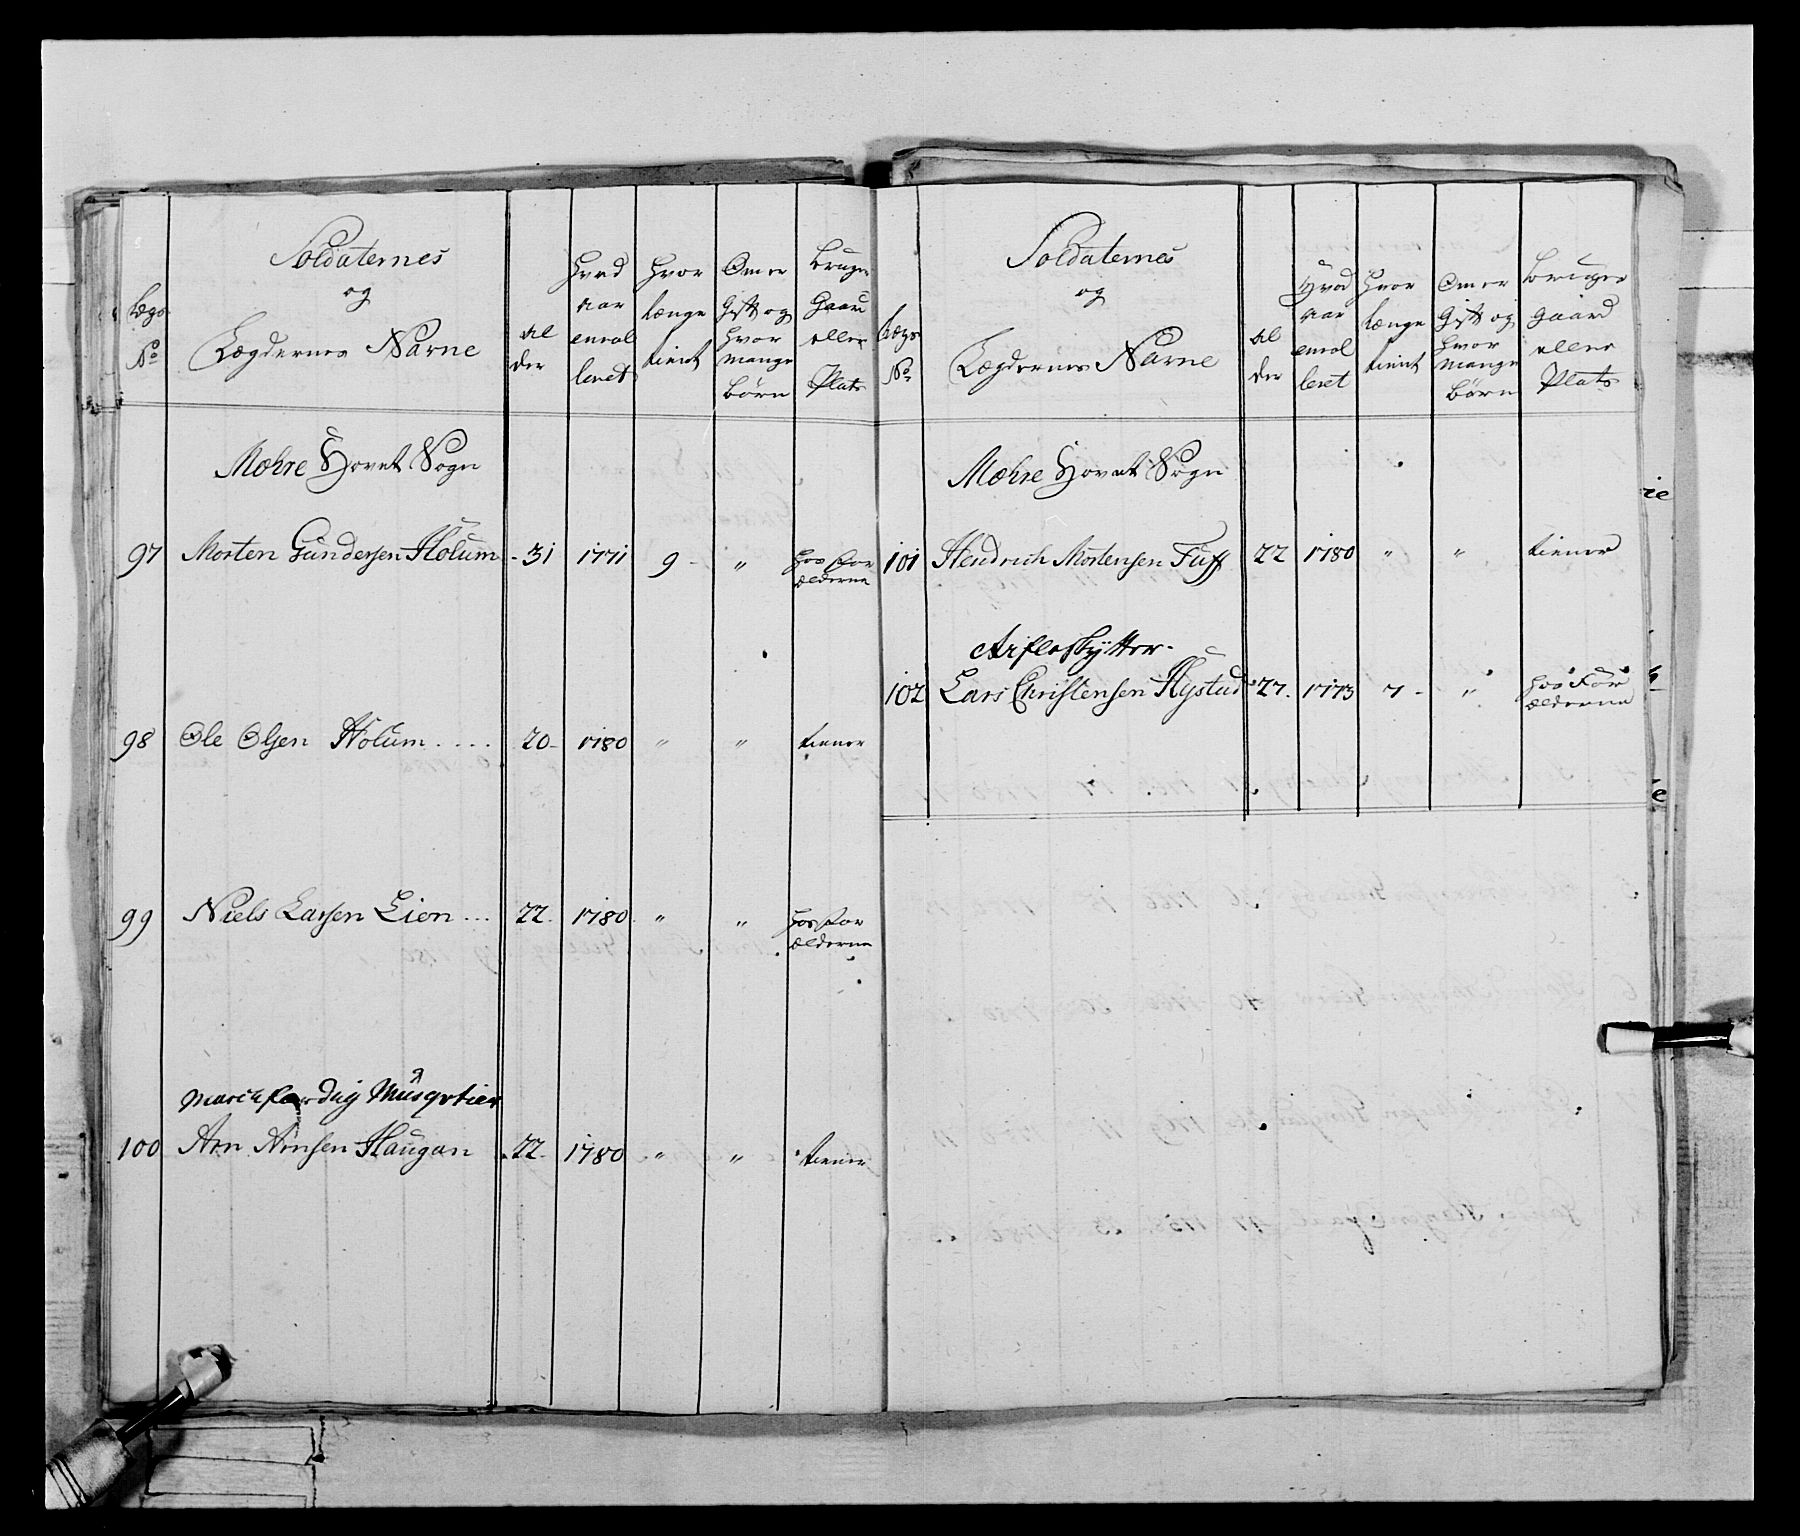 Lægs No
Soldaternes
og
Lægdernes Navne
Al der
Hvad aar enrol leret
Hvor længe tient
Om er Gift og hvor mange Børn
Bruger Gaard eller Plats
Mæhre Hovet Sogn
97 Morten Gundersen Holum - 31 1771 9 - " hos For ælderne
98 Ole Olsen Holum .... 20 - 1780 " " tiener
99 Niels Larsen Lien ... 22. 1780 " " hos For ælderne
Marchfærdig Musqvetier
100 Arn Arnsen Haugan . 22. 1780 " " tiener
Lægs No
Soldaternes
og
Lægdernes Navne
Al der
Hvad aar enrol leret
Hvor længe tient
Om er Gift og hvor mange Børn
Bruger Gaard eller Plats
Mæhre Hovet Sogn
101 Hendrich Mortensen Tuff 22 1780 " " tiener
Rifleskytter.
102 Lars Christensen Hystad 27. 1773 7 - " hos For ælderne